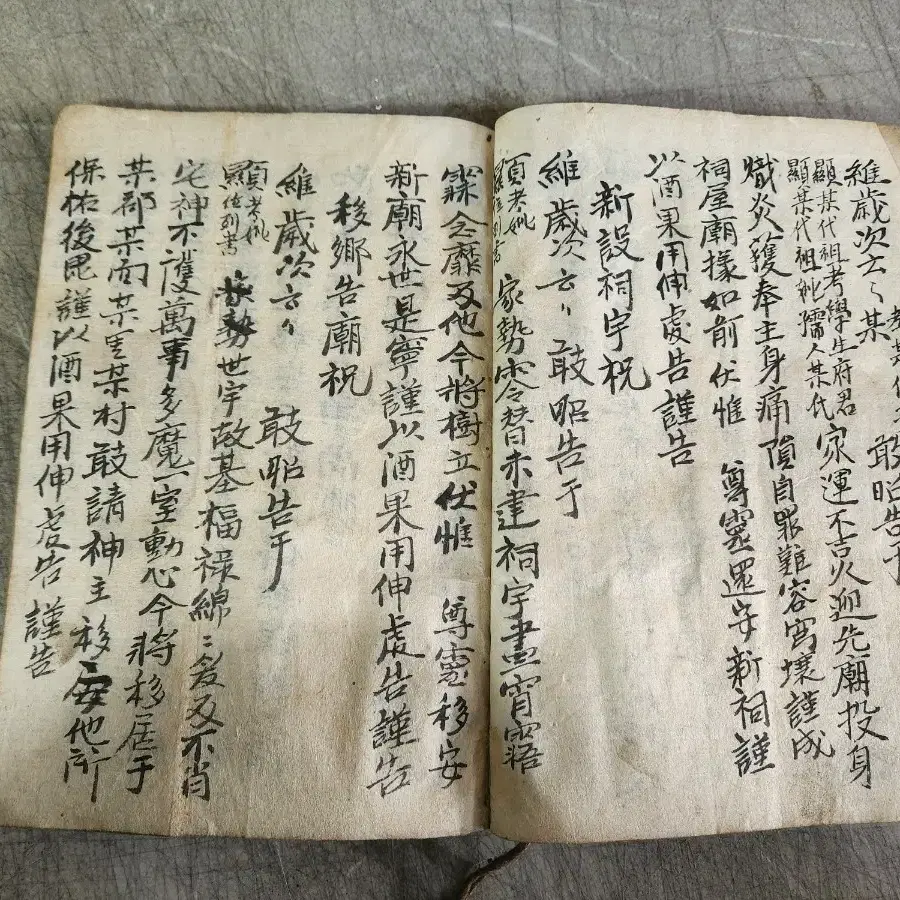 維歲次云〻某 敢昭告于
顯某代祖考學生府君
顯某代祖妣孺人某代
家運不吉火迎先廟投身
熾炎獲奉主身痛隕自罪難容穹壤謹成
祠屋廟㨾如前伏惟 尊靈還安新祠謹
以酒果用伸虔告謹告
新設祠宇祝
維歲次云〃 敢昭告于
顯考妣
列書
家勢零替未建祠宇晝宵寤
寐念靡及他今將樹立伏惟 尊靈移安
新廟永世是寧謹以酒果用伸虔告謹告
移鄉告廟祝
維歲次云〃 敢昭告于
顯考妣
顯位列書
勢世宇故基福祿綿〻爰及不肖
宅神不護萬事多魔一室動心今將移居于
某郡某面某里某村敢請神主移安他所
保佑後毘謹以酒果用伸虔告謹告